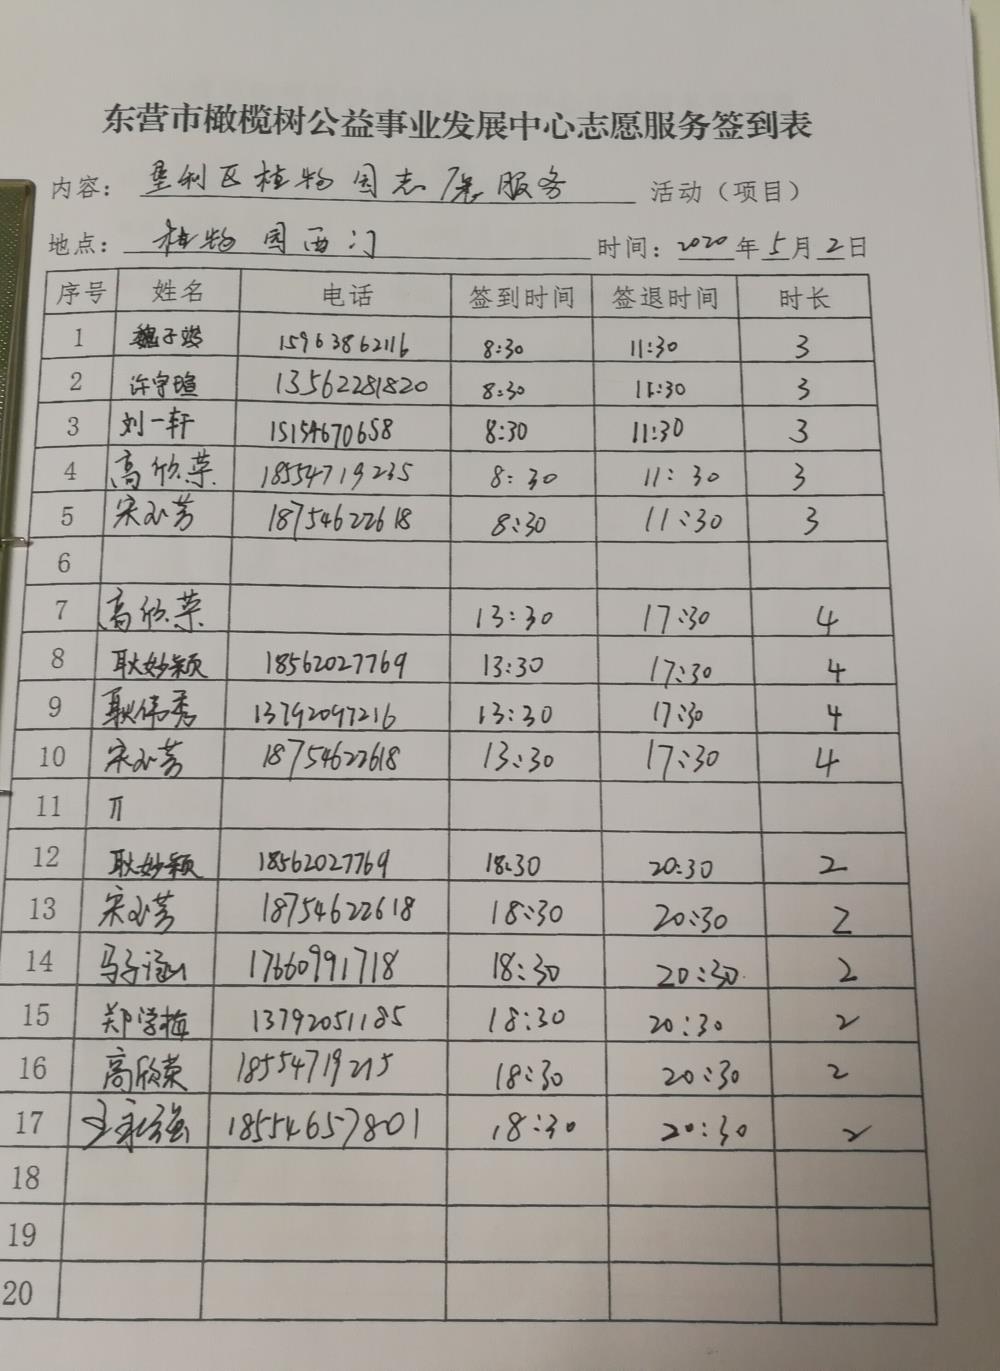 东营市橄榄树公益事业发展中心志愿服务签到表
内容： 垦利区植物园志愿服务 活动（项目）
地点： 植物园西门 时间：2020年5月2日
序号 姓名 电话 签到时间 签退时间 时长
1 15963862116 8:30 11:30 3
2 许守瑄 13562281820 8:30 11:30 3
3 刘一轩 15154670658 8:30 11:30 3
4 高欣荣 18554719235 8:30 11:30 3
5 宋小芳 18754622618 8:30 11:30 3
6
7 高欣荣 13:30 17:30 4
8 耿妙颖 18562027769 13:30 17:30 4
9 耿伟秀 13792097216 13:30 17:30 4
10 宋小芳 18754622618 13:30 17:30 4
11
12 耿妙颖 18562027769 18:30 20:30 2
13 宋小芳 18754622618 18:30 20:30 2
14 马子涵 17660991718 18:30 20:30 2
15 郑学梅 13792051185 18:30 20:30 2
16 高欣荣 18554719215 18:30 20:30 2
17 王永强 18554657801 18:30 20:30 2
18
19
20